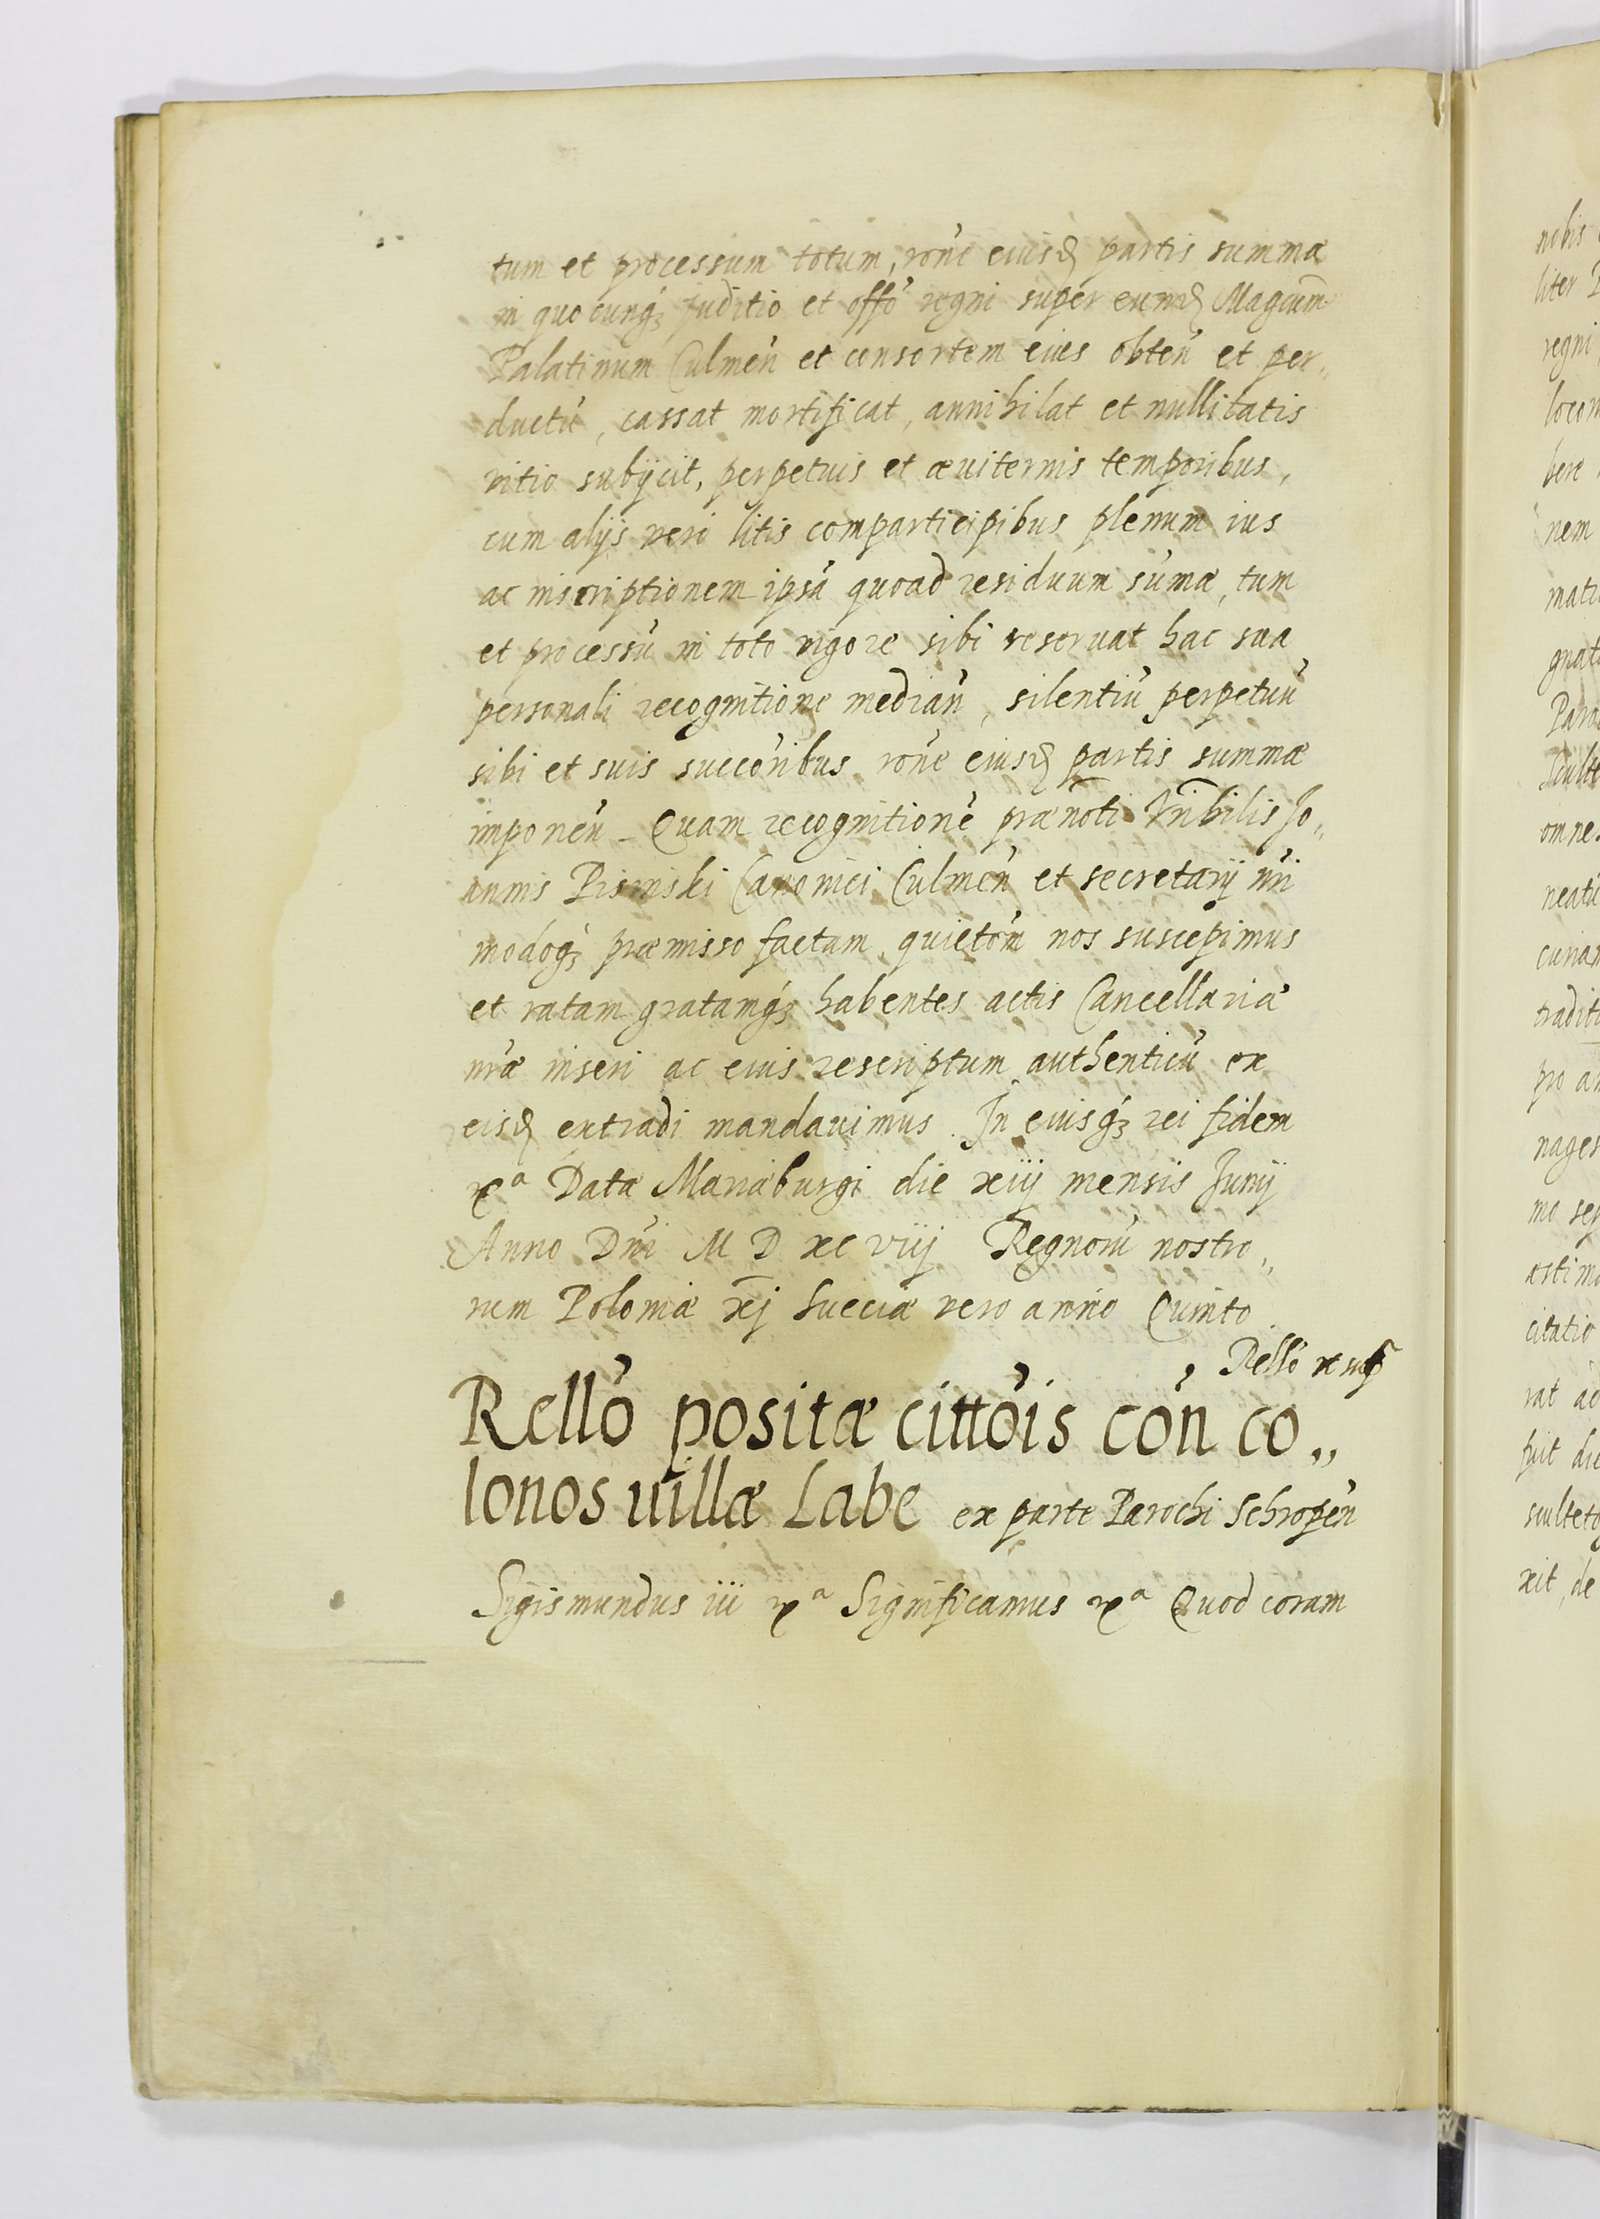 tum et processum totum, rōne eiusd partis summæ
in quocunq₃ Juditio et offō regni super eumd Magcum
Palatinum Culmeñ et consortem eius obteñ et per„
ductū, cassat mortificat, annihilat et nullitatis
vitio subijcit, perpetuis et æviternis temporibus,
cum alijs vero litis comparticipibus plenum ius
ac inscriptionem ipsā quoad residuum sūmæ, tum
et processū in toto vigore sibi reservat hac sua
personali recognitione mediañ, silentiū perpetuū
sibi et suis succōribus rōne eiusd partis summæ
imponeñ. Quam recognitionē prænoti Vn̄bilis Jo„
annis Pisinski Canonici Culmeñ et secretarij nr̄i
modoq₃ præmisso factam, quietōm nos suscepimus
et ratam gratamq₃ habentes actis Cancellariæ
nr̄æ inseri ac eius rescriptum authenticū ex
eisd extradi mandavimus. In eiusq₃ rei fidem
rxª Data Mariæburgi die xiij mensis Junij
Anno Dn̄i M D xc viij Regnorū nostro„
rum Poloniæ xj Sueciæ vero anno Quinto
Rellō
Rellō positæ cittōis cōn co„
lonos villæ Labe ex parte Parochi Schropeñ
Sigismundus iii rxª Significamus rxª Quod coram
nobis
liter
regni
locom
bere
nem
omnes
curiam
pro
nages
mo
citatio
rat ac
fuit die
xit, de